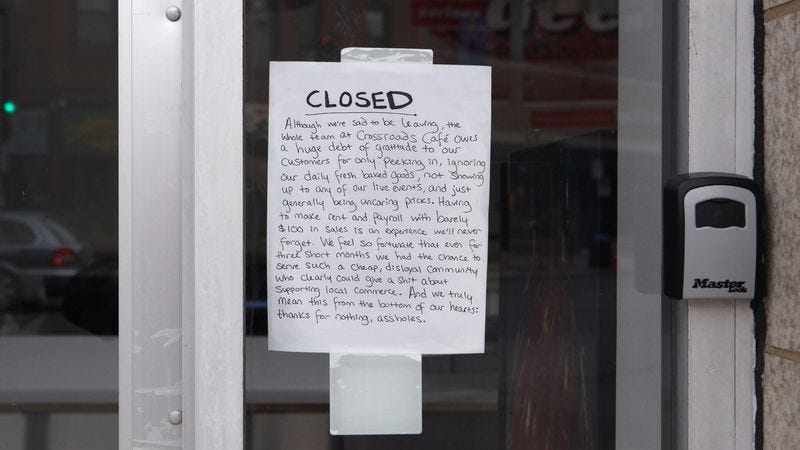 CLOSED
Although we're sad to be leaving, the
whole team at Crossroads Café owes
a huge debt of gratitude to our
customers for only peeking in, ignoring
our daily fresh baked goods, not showing
up to any of our live events, and just
generally being uncaring pricks. Having
to make rent and payroll with barely
$100 in sales is an experience we'll never
forget. We feel so fortunate that even for
three short months we had the chance to
serve such a cheap, disloyal community
who clearly could give a shit about
supporting local commerce. And we truly
mean this from the bottom of our hearts:
thanks for nothing, assholes.
Master Lock